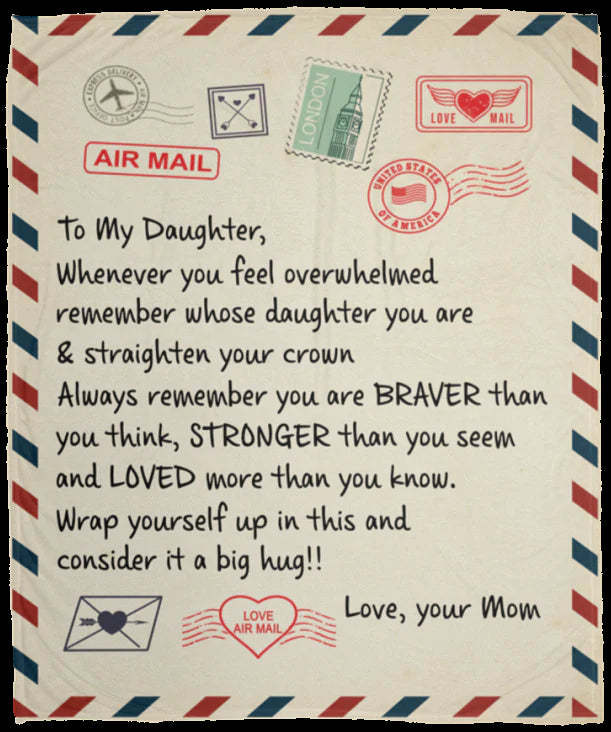 EXPRESS DELIVERY
AIR MAIL
POST OFFICE
LONDON
LOVE MAIL
AIR MAIL
UNITED STATES
OF AMERICA
To My Daughter,
Whenever you feel overwhelmed
remember whose daughter you are
& straighten your crown
Always remember you are BRAVER than
you think, STRONGER than you seem
and LOVED more than you know.
Wrap yourself up in this and
consider it a big hug!!
Love, your Mom
LOVE
AIR MAIL